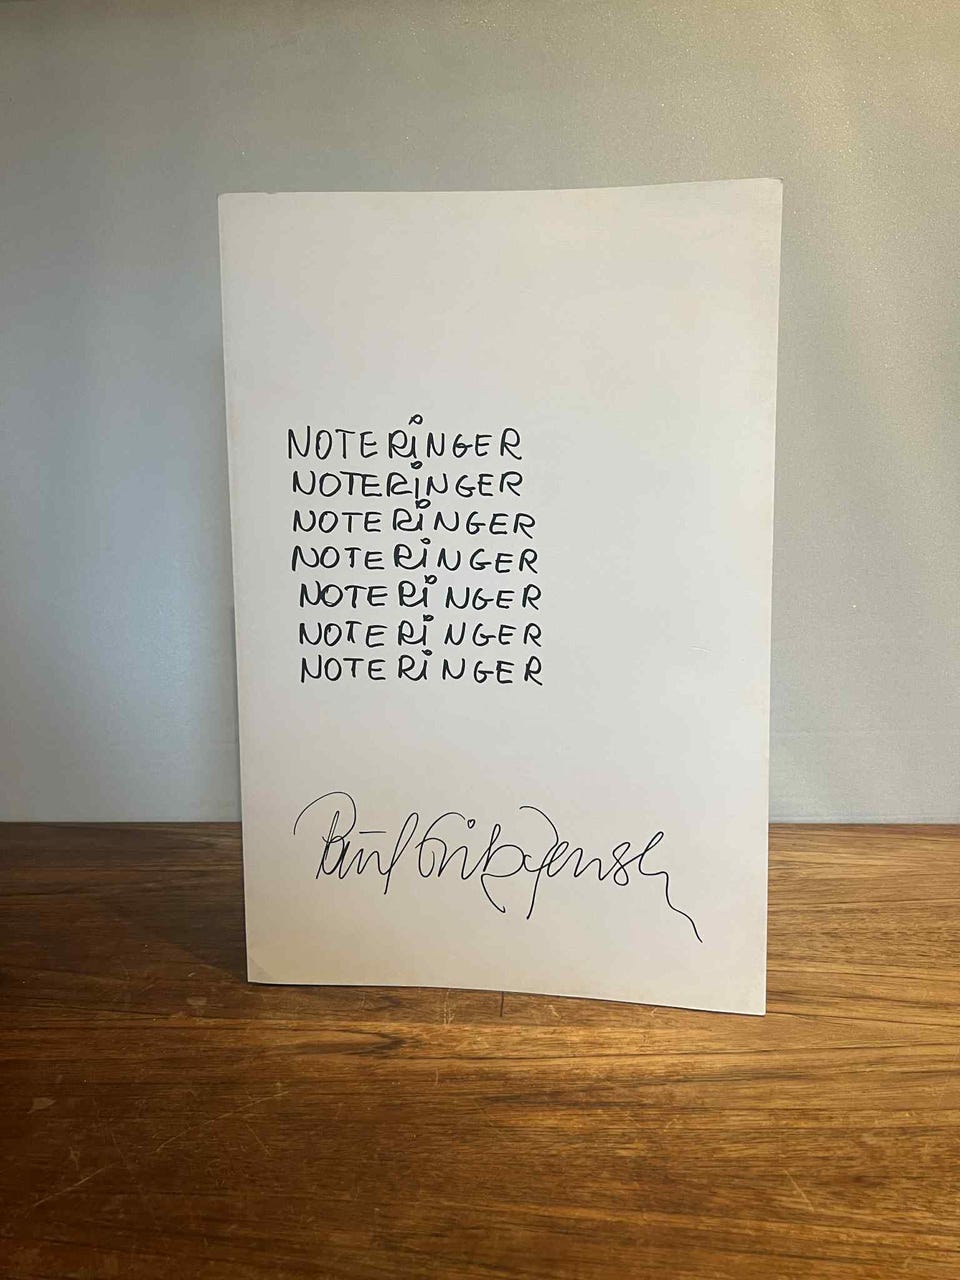 NOTERiNGER
NOTERiNGER
NOTERiNGER
NOTERiNGER
NOTERiNGER
NOTERiNGER
NOTERiNGER
Poul Erik Jensen